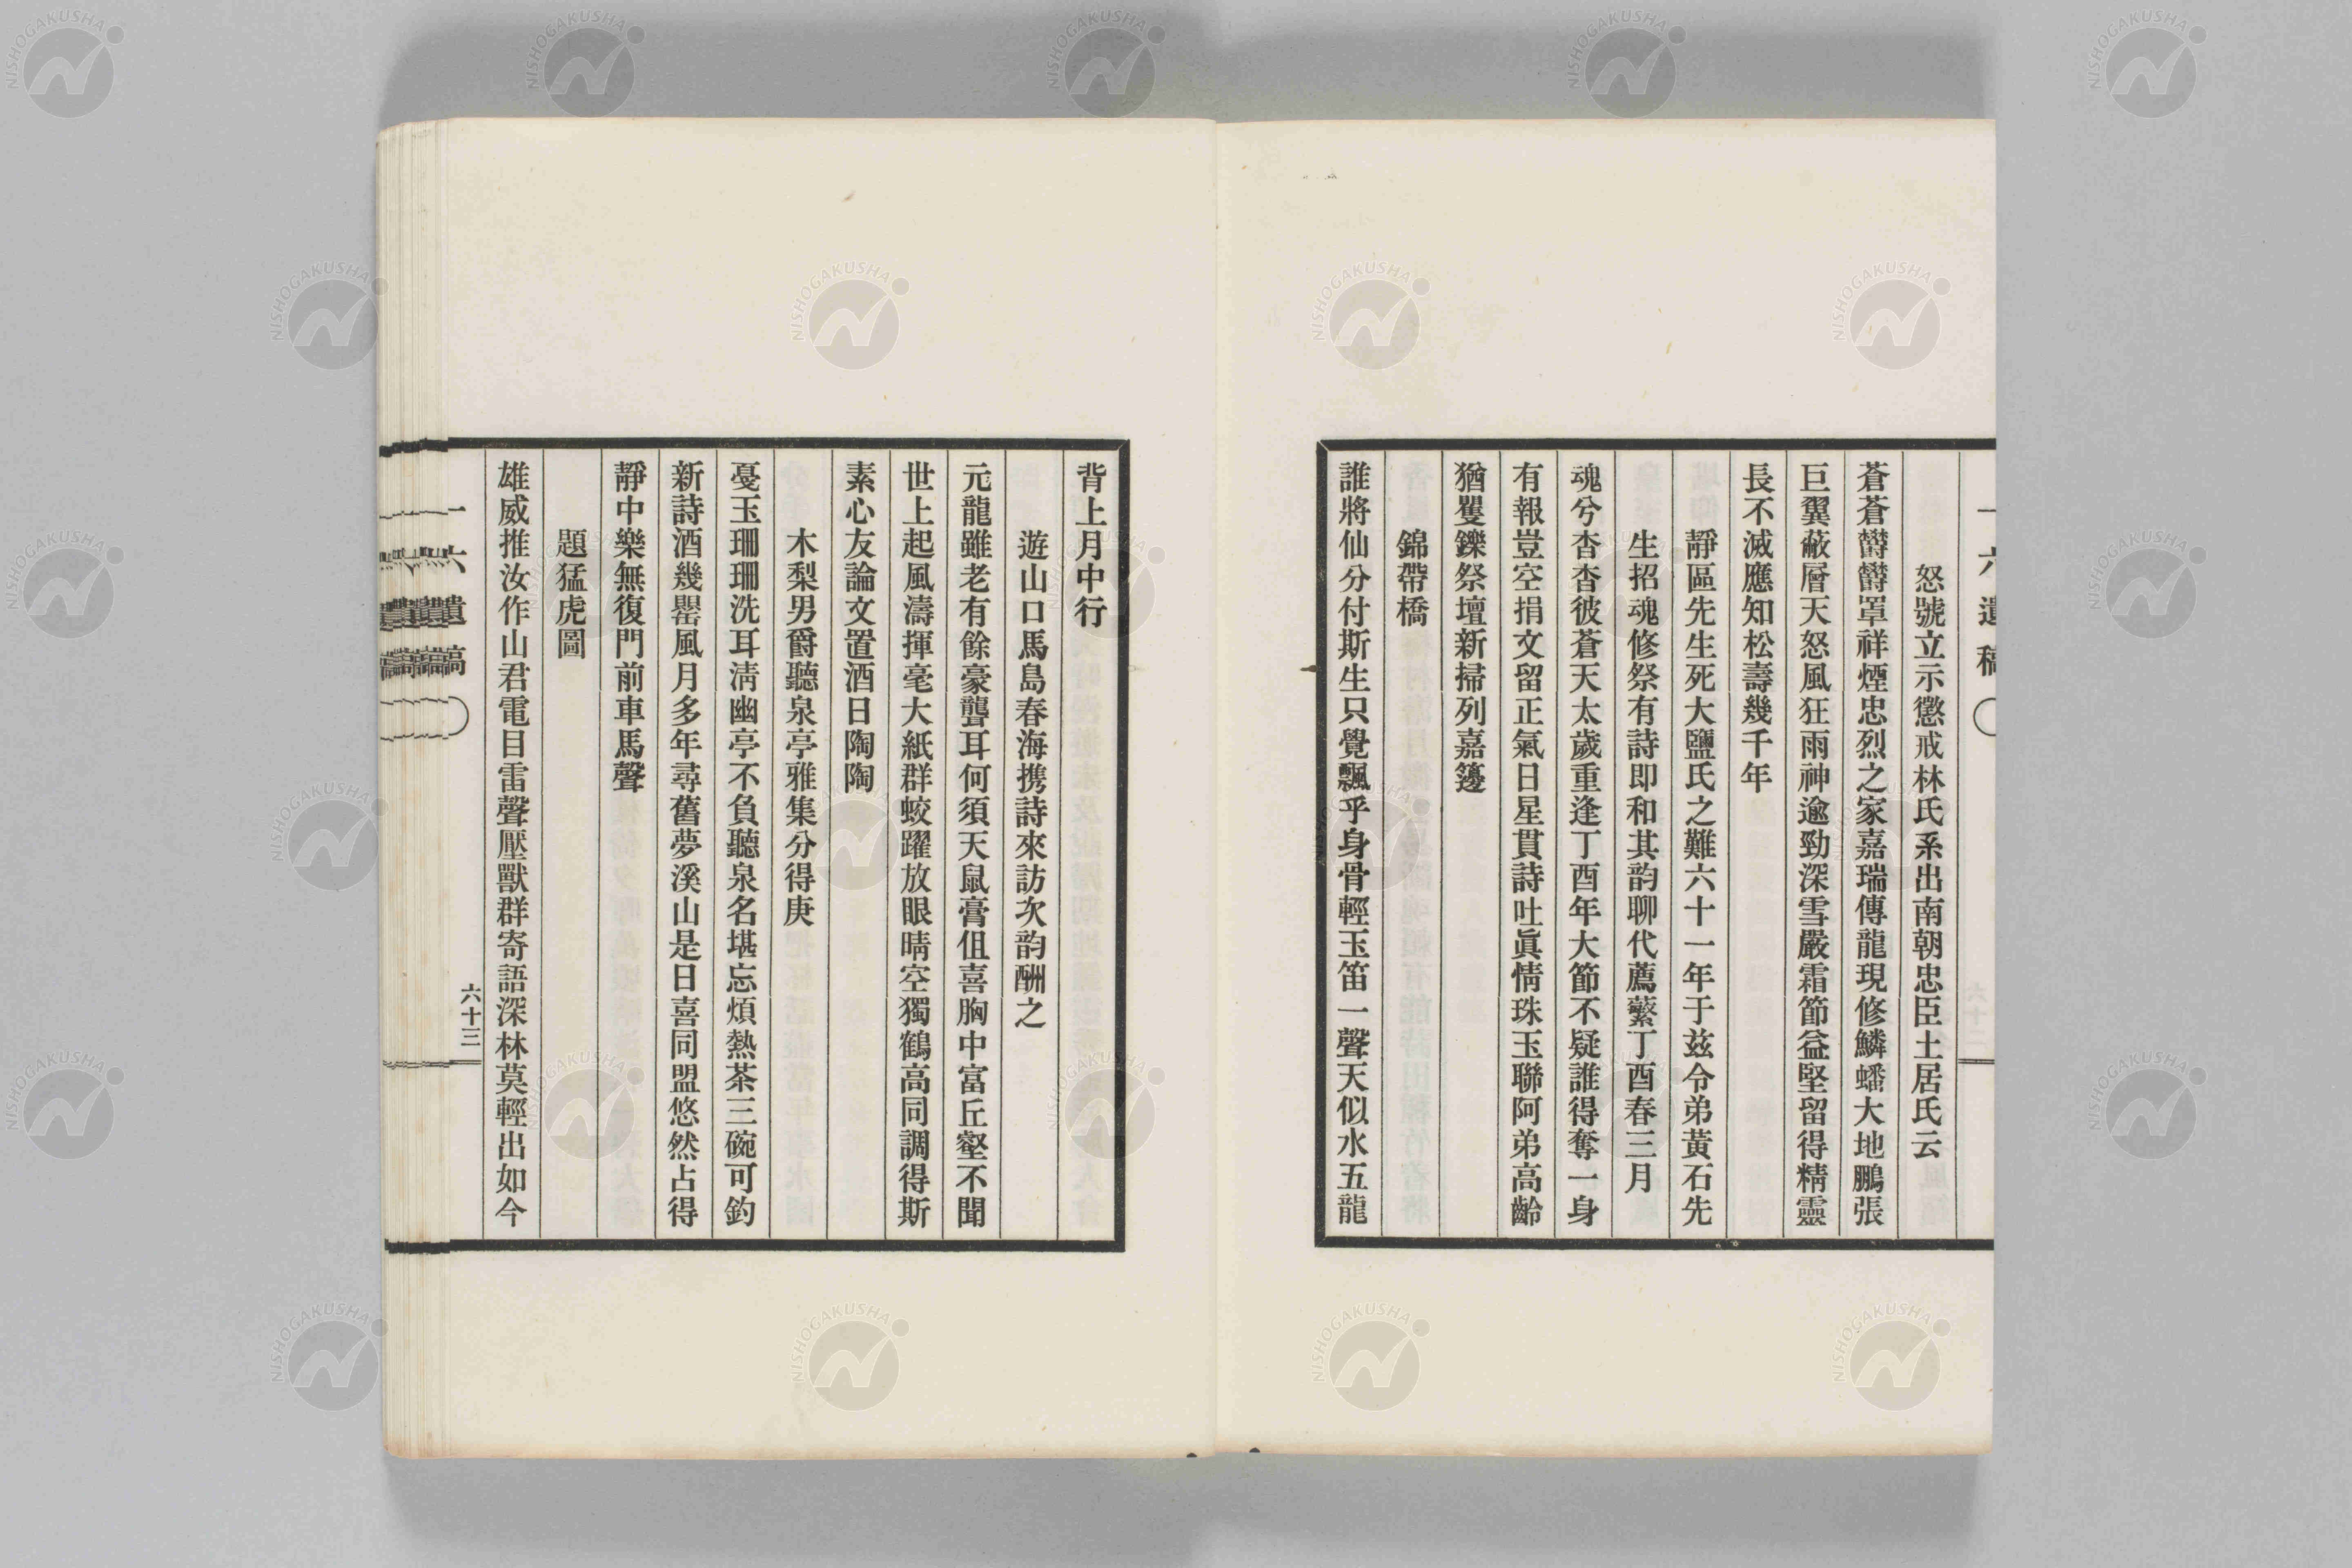 一六遺稿
怒號立示懲戒林氏系出南朝忠臣土居氏云
蒼蒼欝欝罩祥煙忠烈之家嘉瑞傳龍現修鱗蟠大地鵬張
巨翼蔽層天怒風狂雨神逾勁深雪嚴霜節益堅留得精靈
長不滅應知松壽幾千年
靜區先生死大鹽氏之難六十一年于玆令弟黃石先
生招魂修祭有詩即和其韵聊代薦蘩丁酉春三月
魂兮杳杳彼蒼天太歲重逢丁酉年大節不疑誰得奪一身
有報豈空捐文留正氣日星貫詩吐眞情珠玉聯阿弟高齡
猶矍鑠祭壇新掃列嘉籩
錦帶橋
誰將仙分付斯生只覺飄乎身骨輕玉笛一聲天似水五龍
背上月中行
遊山口馬島春海携詩來訪次韵酬之
元龍雖老有餘豪聾耳何須天鼠膏伹喜胸中富丘壑不聞
世上起風濤揮毫大紙群蛟躍放眼晴空獨鶴高同調得斯
素心友論文置酒日陶陶
木梨男爵聽泉亭雅集分得庚
戞玉珊珊洗耳淸幽亭不負聽泉名堪忘煩熱茶三碗可釣
新詩酒幾罌風月多年尋舊夢溪山是日喜同盟悠然占得
靜中樂無復門前車馬聲
題猛虎圖
雄威推汝作山君電目雷聲壓獸群寄語深林莫輕出如今
一六遺稿
六十三
NISHOGAKUSHA